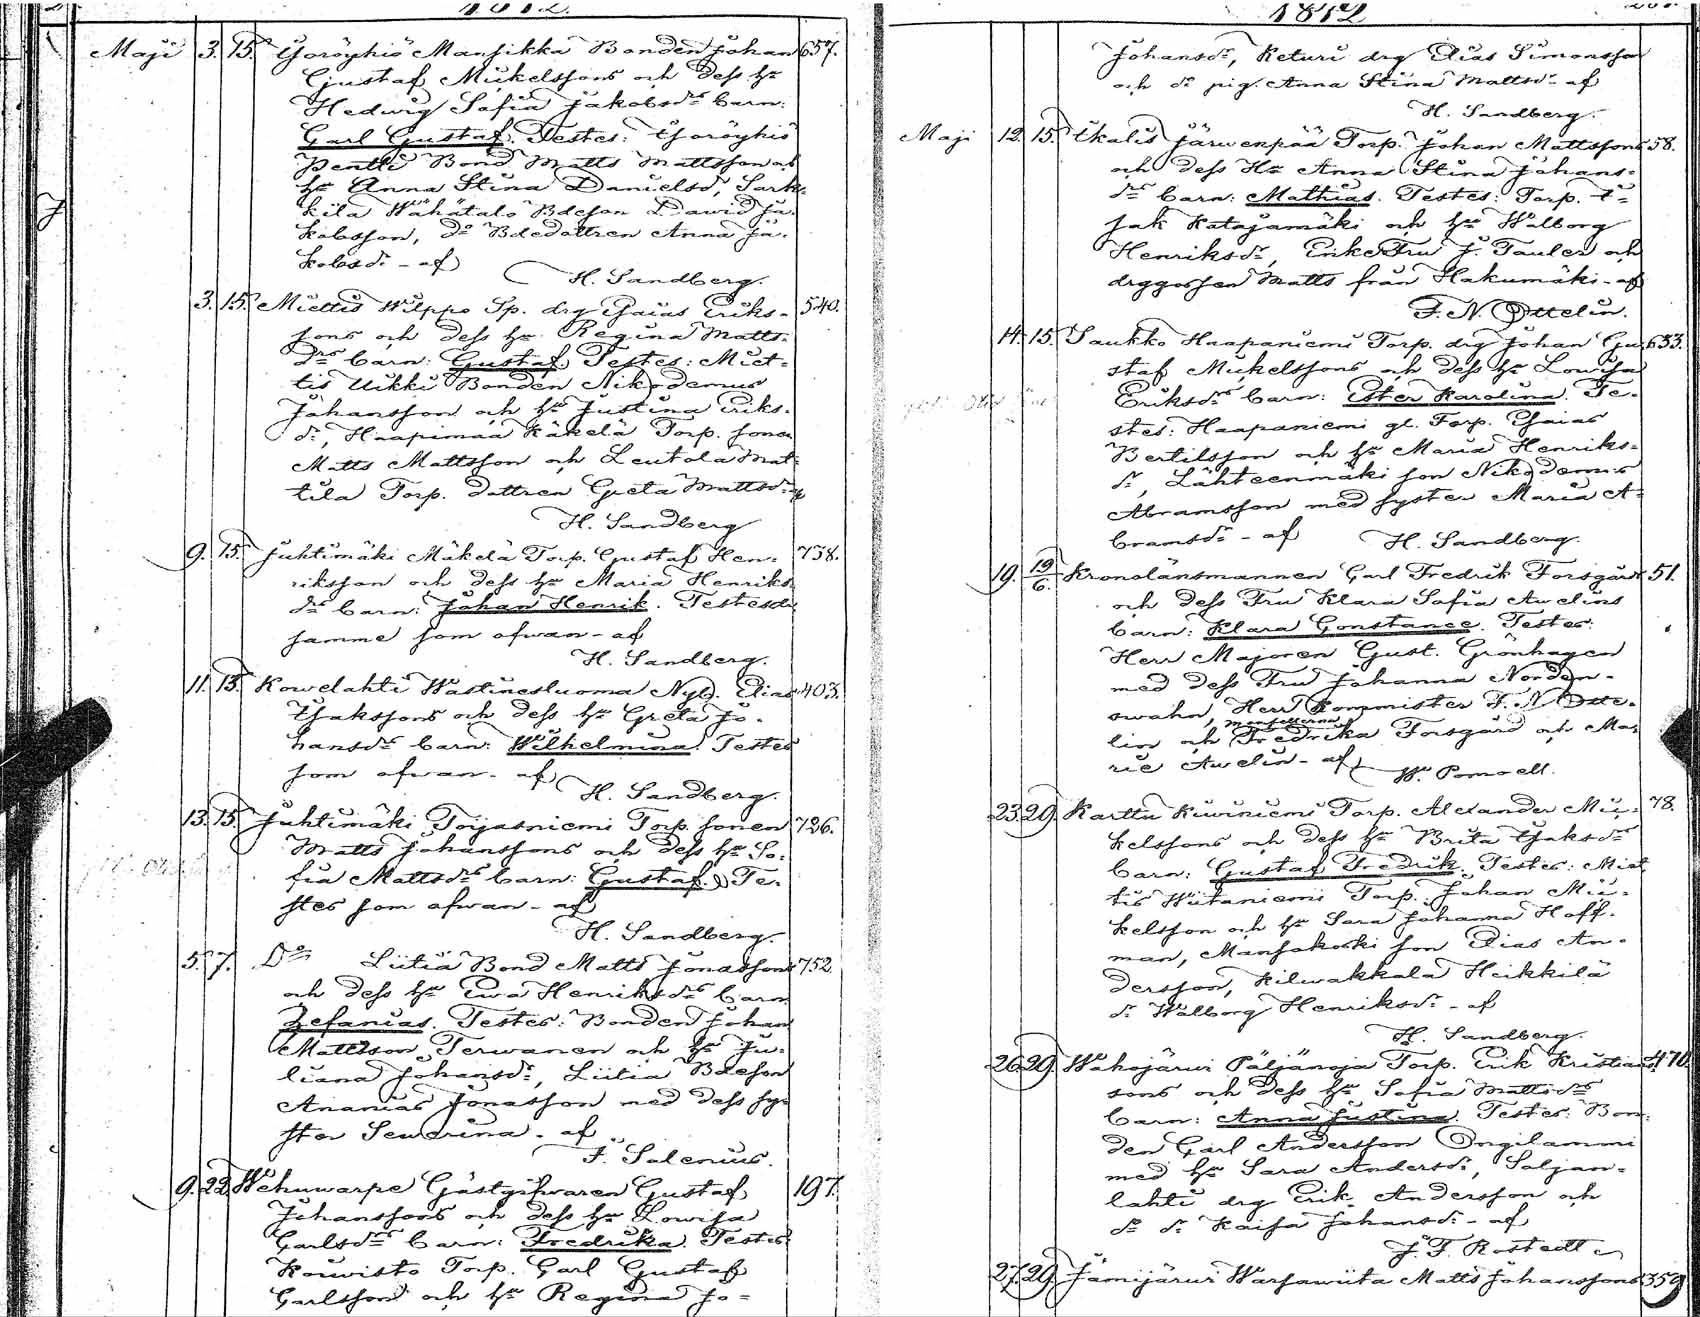 1812.
Maji 3. 15. Yöröyhiö Mansikka Bonden Johan 657.
Gustaf Mickelssons och dess hu
Hedwig Sofia Jakobsdrs barn:
Carl Gustaf. Testes: Yöröyhiö
Penttu Bond Matts Mattsson o.
hu Anna Stina Danielsdr, Sark-
kila Wähätalo Bdeson Dawid Ja-
kobsson, do Bdedottren Anna Ja-
kobsdr - af
H. Sandberg.
3. 15. Miettis Wilppo Sp. drg Esaias Eriks- 540.
sons och dess hu Regina Matts-
drs barn: Gustaf. Testes: Miet-
tis Uikki Bonden Nikodemus
Johansson och hu Justina Eriks-
dr, Haapimaa Käkelä Torp. sonen
Matts Mattsson och Leutola Mat-
tila Torp. dottren Greta Mattsdr - af
H. Sandberg
9. 15. Juhtimäki Mäkelä Torp. Gustaf Hen- 738.
riksson och dess hu Maria Henriks-
drs barn: Johan Henrik. Testes de
samme som ofwan - af
H. Sandberg.
11. 15. Kowelahti Wästinesluoma Nyb. Elias 403.
Isakssons och dess hu Greta Jo-
hansdrs barn: Wilhelmina. Testes
som ofwan - af
H. Sandberg.
13. 15. Juhtimäki Torjasniemi Torp. sonen 726.
Matts Johanssons och dess hu So-
fia Mattsdrs barn: Gustaf. Te-
stes som ofwan - af
H. Sandberg.
5. 7. Do Liitiä Bond Matts Jonassons 752
och dess hu Ewa Henriksdrs barn
Zefanias. Testes: Bonden Johan
Mattsson Terwanen och hu Ju-
liana Johansdr, Liitiä Bdeson
Ananias Jonasson med dess sy-
ster Sewerina - af
F. Salenius.
9. 22. Wehuwarpe Gästgifwaren Gustaf 197.
Johanssons och dess hu Lowisa
Carlsdrs barn: Fredrika. Testes:
Kouwisto Torp. Carl Gustaf
Carlsson och hu Regina Jo-
1812
Johansdr, Keturi drg Elias Simonsson
och do pig. Anna Stina Mattsdr - af
H. Sandberg.
Maji 12. 15. Ikalis Järwenpää Torp. Johan Mattssons 58.
och dess Hu Anna Stina Johans-
drs barn: Mathias. Testes: Torp. I-
sak Katajamäki och hu Walborg
Henriksdr, Enkefru J. Tauler och
drggossen Matts från Hakumäki - af
F. N. Ottelin.
14. 15. Saukko Haapaniemi Torp. drg Johan Gu- 633.
staf Mickelssons och dess hu Lowisa
Eriksdrs barn: Ester Karolina. Te-
stes: Haapaniemi gl. Torp. Esaias
Bertilsson och hu Maria Henriks-
dr, Lähteenmäki son Nikodemus
Abramsson med syster Maria A-
bramsdr - af H. Sandberg.
19. 19/6. Kronolänsmannen Carl Fredrik Forsgårds 51.
och dess Fru Klara Sofia Awelins
barn: Klara Constance. Testes:
Herr Majoren Gust. Grönhagen
med dess Fru Johanna Norden-
swahn, Herr Kommister F. N. Otte-
mamsellerna
lin och Fredrika Forsgård och Ma-
rie Awelin - af W. Pomoell.
23. 29. Karttu Kiwiniemi Torp. Alexander Mic- 78.
kelssons och dess hu Brita Isaksdrs
barn: Gustaf Fredrik. Testes: Miet-
tis Wiitaniemi Torp. Johan Mic-
kelsson och hu Sara Johanna Hoff-
man, Mansakoski son Elias An-
dersson, Kilwakkala Heikkilä
dr Walborg Henriksdr - af
H. Sandberg.
26. 29. Wahojärwi Päljänoja Torp. Erik Kristians- 470.
sons och dess hu Sofia Mattsdrs
barn: Anna Justina. Testes: Bon-
den Carl Andersson Ongilammi
med hu Sara Andersdr, Saljan-
lahti drg Erik Andersson och
do dr Kaisa Johansdr - af
J. F. Rostedt
27. 29. Jämijärwi Warsawiita Matts Johanssons 359